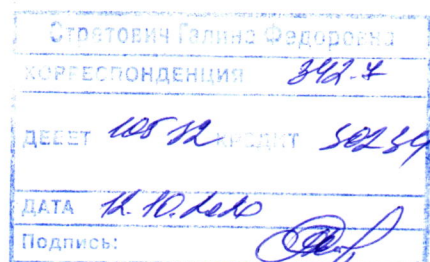 Стретович Галина Федоровна
КОРРЕСПОНДЕНЦИЯ 342-7
ДЕБЕТ 105 32 КРЕДИТ 302 34
ДАТА 12.10.2020
Подпись: